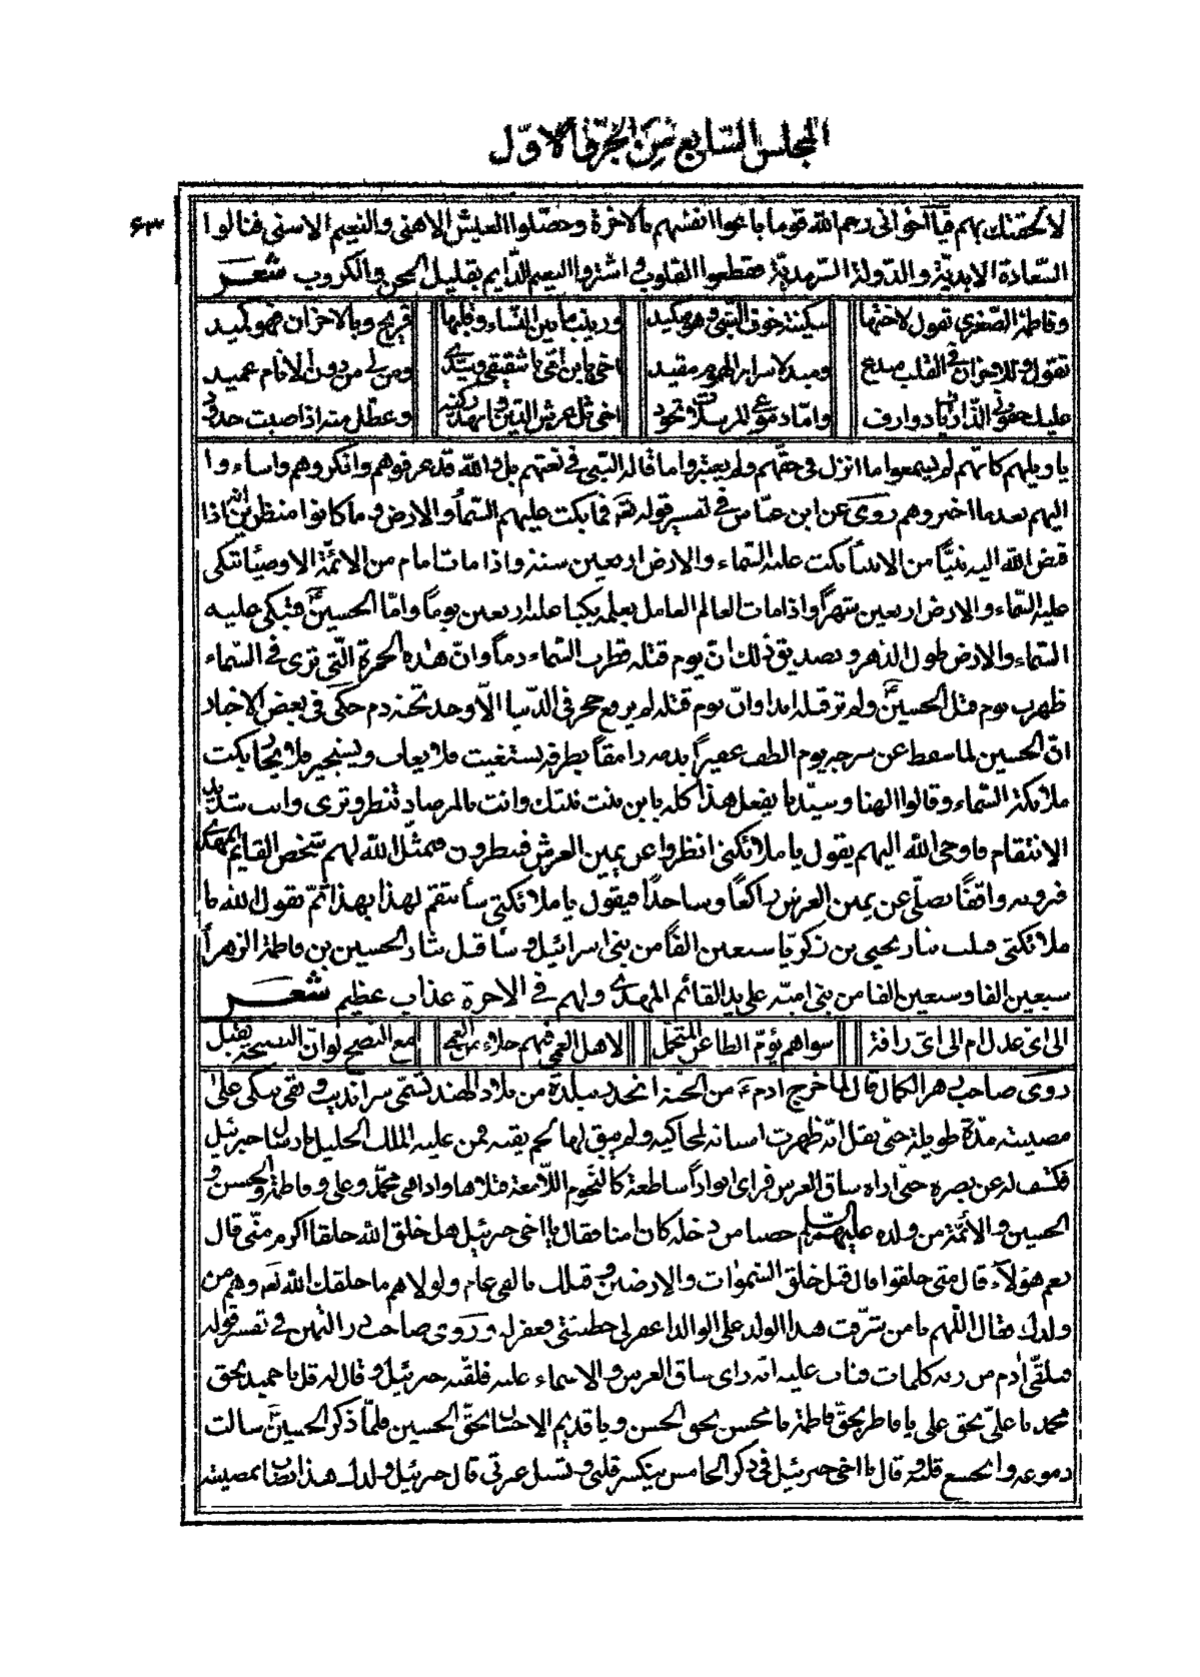 المجلس السابع من الجزء الاول
۶۳
بهم فيا اخوانى رحم الله قوما باعوا انفسهم بالاخرة وحصلوا العيش الاهنى والنعيم الاسنى فنالوا
السعادة الابدية والدولة السرمدية فقطعوا القلوب و اشتروا النعيم الدايم بقليل المحن والكروب شعر
وفاطمة الصغرى تقول لاختها سكينة خوف السبى وزينب ما بين النساء وقلبها قريح وبالاحزان فهو كميد
تقول وللاحزان فى القلب مقيد اخى يابن امى يا شقيقى وسيدى ومن لى من دون الانام عميد
اخى ثل عرش الدين وانهد ركنه وعطل مذ اصبت حدود
يا ويلهم كانهم لم يسمعوا ما انزل فى حقهم ولم يعتبروا ما قاله النبى فى نعتهم بل والله قد عرفوهم وانكروهم واساءوا
اليهم بعد ما اختبروهم روى عن ابن عباس فى تفسير قوله تعالى فما بكت عليهم السماء والارض وما كانوا منظرين انه اذا
قبض الله اليه نبيا من الانبياء بكت عليه السماء والارض اربعين سنة واذا مات امام من الائمة الاوصياء تبكى
عليه السماء والارض اربعين شهرا واذا مات العالم العامل بعلمه بكيا عليه اربعين يوما واما الحسين فتبكى عليه
السماء والارض طول الدهر وتصديق ذلك ان يوم قتله قطرت السماء دما وان هذه الحمرة التى ترى فى السماء
ظهرت يوم قتل الحسين ولم تر قبله ابدا وان يوم قتله لم يرفع حجر فى الدنيا الا وجد تحته دم حكى فى بعض الاخبار
ان الحسين لما سقط عن سرجه يوم الطف عفيرا بدمه رامقا بطرفه يستغيث فلا يغاث ويستجير فلا يجار بكت
ملائكة السماء وقالوا الهنا وسيدنا يفعل هذا كله بابن بنت نبيك وانت بالمرصاد تنظر وترى وانت شديد
الانتقام فاوحى الله اليهم يقول يا ملائكتى انظروا عن يمين العرش فينظرون فيمثل الله لهم شخص القايم المهدى
فيرونه واقفا يصلى عن يمين العرش راكعا وساجدا فيقول يا ملائكتى سأنتقم لهذا بهذا ثم يقول الله يا
ملائكتى طلبت بثار يحيى بن زكريا سبعين الفا من بنى اسرائيل وساقتل بثار الحسين بن فاطمة الزهرا
سبعين الفا وسبعين الفا من بنى امية على يد القائم المهدى ولهم فى الاخرة عذاب عظيم شعر
الى اى عدل ام الى اى رافة سواهم يؤم الطاعن المتحمل لاهل العمى فيهم جلاء من العمى مع النصح لو ان النصيحة تقبل
روى صاحب الكمال قال لما خرج ادم من الجنة انحدر ببلدة من بلاد الهند تسمى سرانديب وبقى يبكى على
مصيبته مدة طويلة حتى نقل انه ظهرت اسنانه لمحاكيه ولم يبق لها لحم يقيه فمن عليه الملك الجليل بارسال جبرئيل
فكشف له عن بصره حتى اراه ساق العرش فراى انوارا ساطعة كالنجوم اللامعة فتلاها واذا هى محمد وعلى وفاطمة والحسن و
الحسين والائمة من ولده عليهم السلام حصنا من دخله كان امنا فقال يا اخى جبرئيل هل خلق الله خلقا اكرم منى قال
نعم هؤلاء قال متى خلقوا قال قبل خلق السموات والارضين و قبلك بالفى عام ولولاهم ما خلقك الله نعم وهم من
ولدك فقال اللهم يا من شرفت هذا الولد على الوالد اغفر لى خطيئتى فغفر له وروى صاحب در الثمين فى تفسير قوله
فتلقى ادم من ربه كلمات فتاب عليه انه راى ساق العرش والاسماء عليه فلقنه جبرئيل و قال له قل يا حميد بحق
محمد يا على بحق على يا فاطر بحق فاطمة يا محسن بحق الحسن ويا قديم الاحسان بحق الحسين فلما ذكر الحسين سالت
دموعه وانخشع قلبه و قال يا اخى جبرئيل فى ذكر الخامس ينكسر قلبى وتسيل عبرتى قال جبرئيل ولدك هذا يصاب بمصيبة